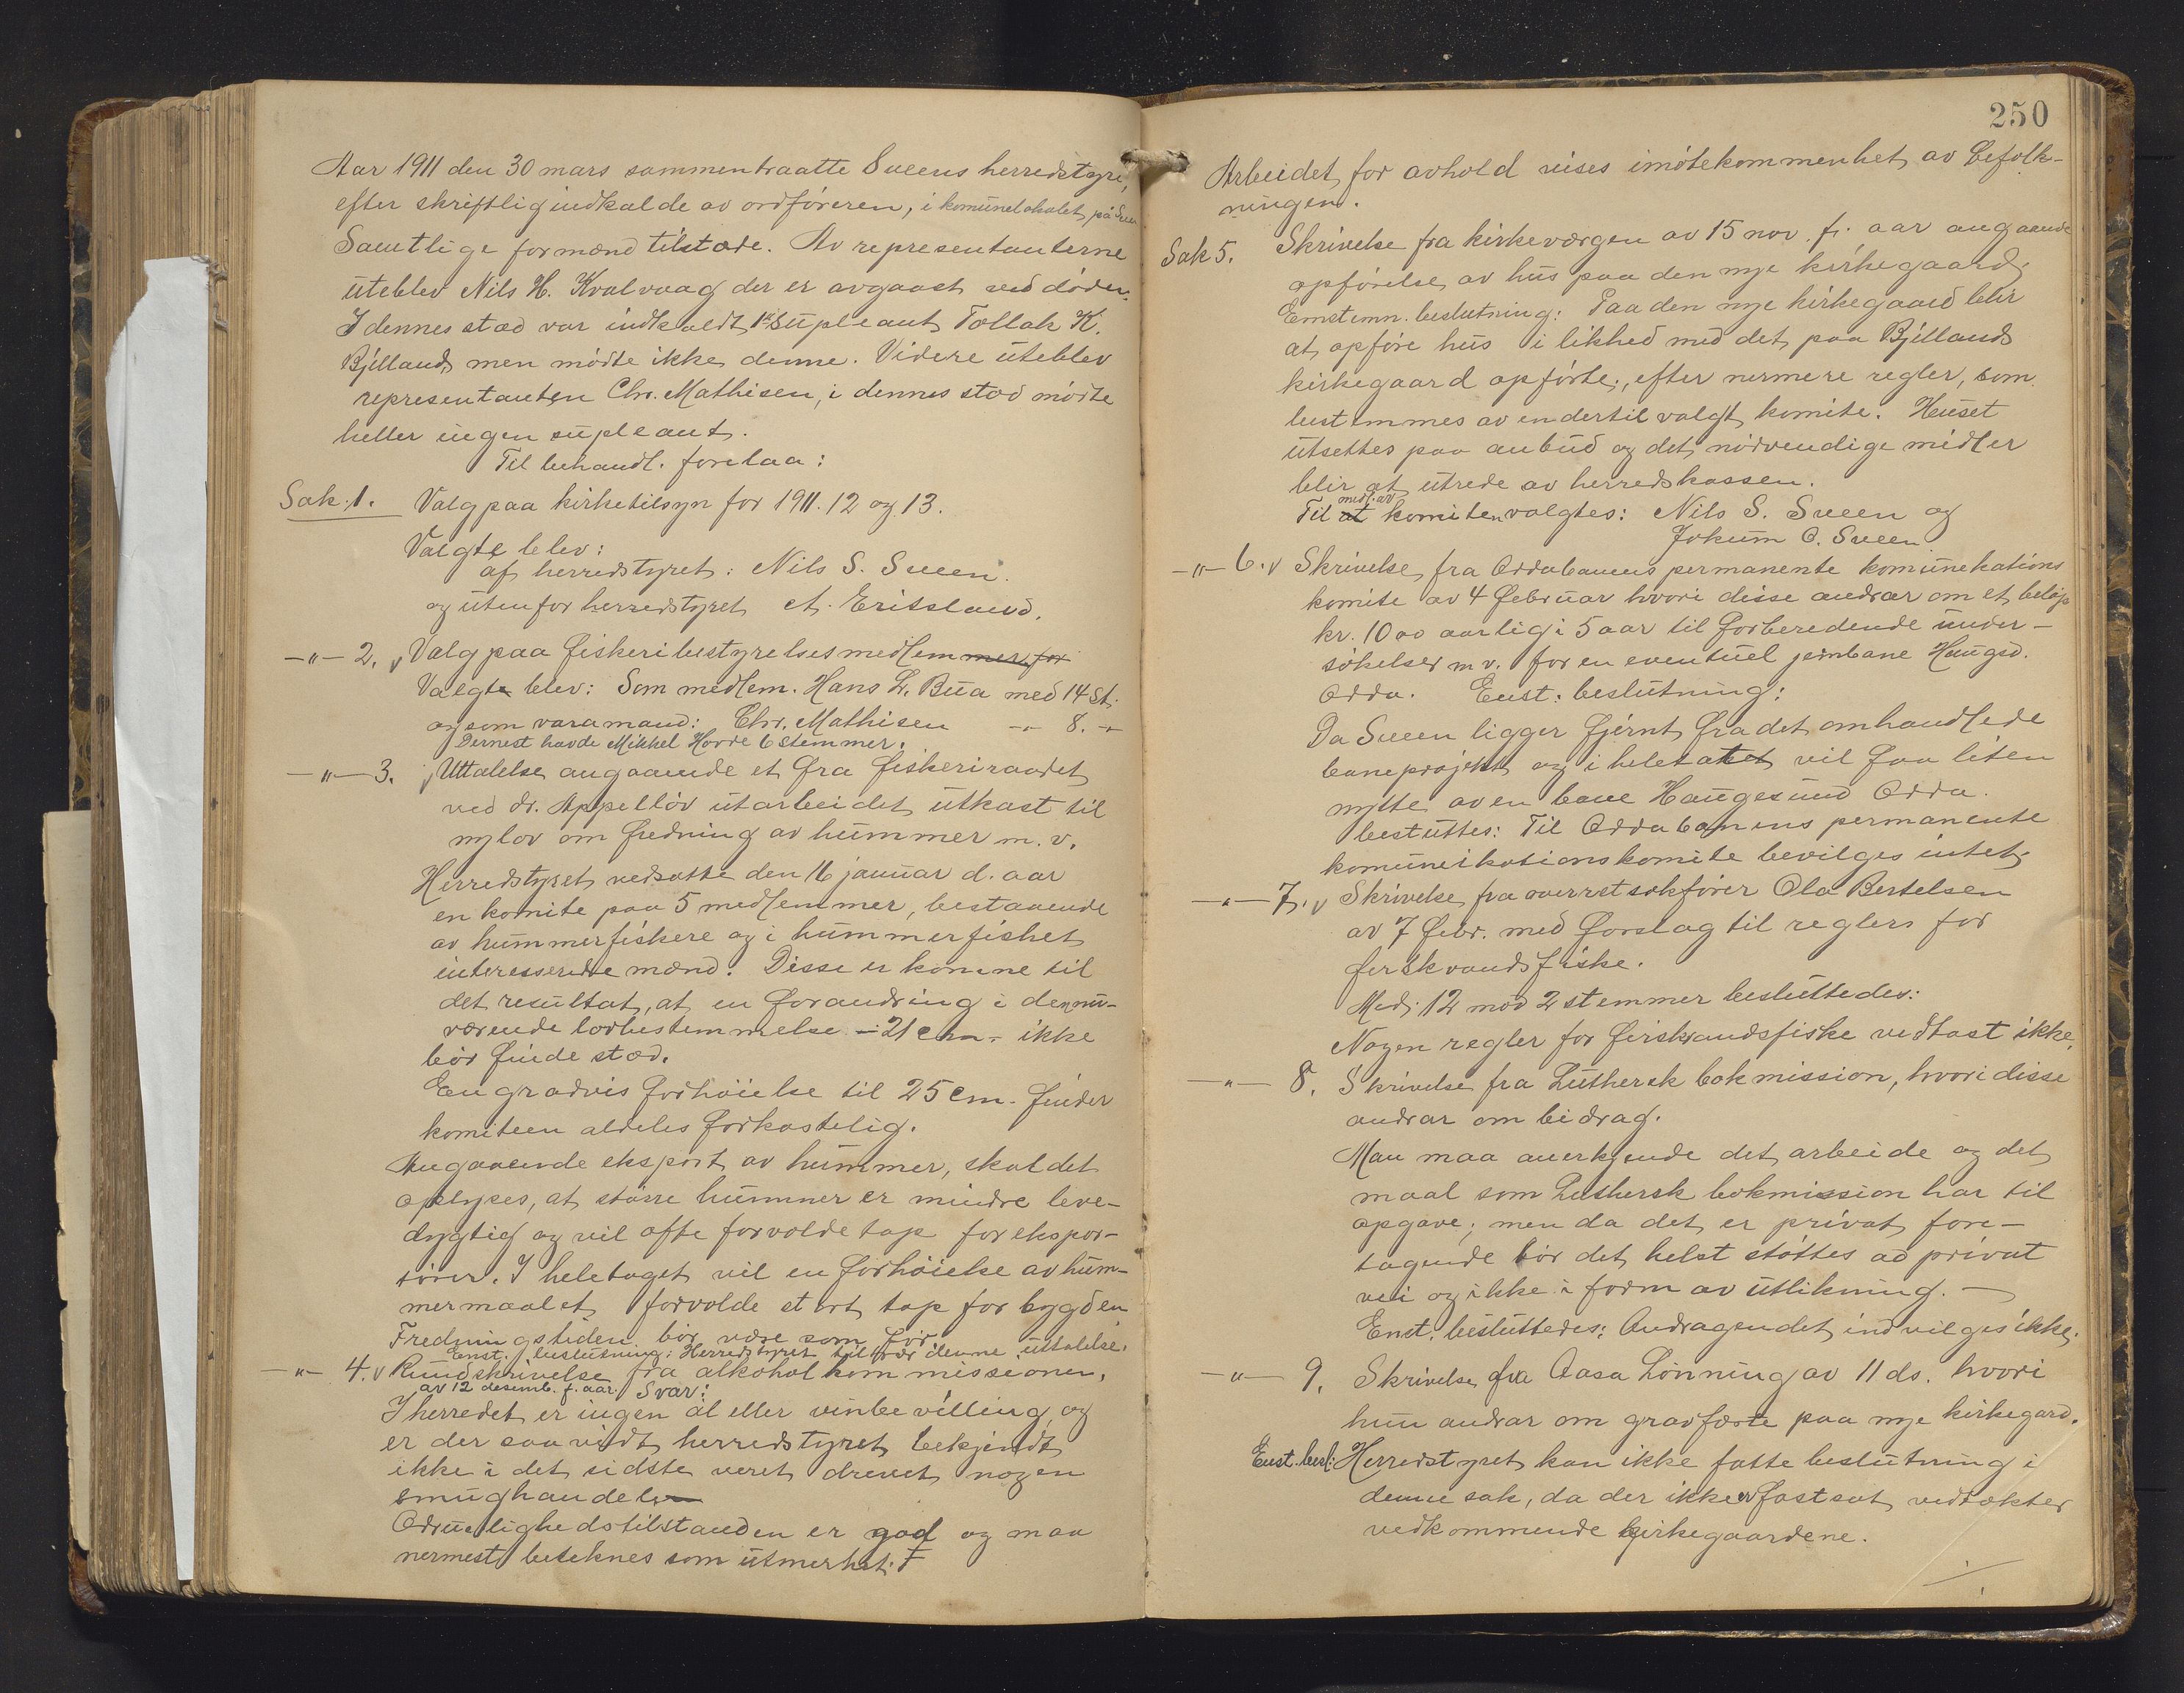 Aar 1911 den 30 mars sammentraatte Sveens herredstyre,
efter skriftlig indkalde av ordføreren, i komunelokalet på Sveen
Samtlige formænd tilstæde. Av representanterne
uteblev Nils H. Kvalvaag der er avgaaet ved døden.
I dennes stæd var indkaldt 1ste supleant Tollak K.
Bjelland, men mødte ikke denne. Videre uteblev
representanten Chr. Mathisen, i dennes stæd mødte
heller ingen supleant.
Til behandl. forelaa:
Sak 1. Valg paa kirketilsyn for 1911. 12 og 13.
Valgte blev:
af herredstyret: Nils S. Sveen.
og utenfor herredstyret A. Eritsland.
-"- 2. Valg paa fiskeribestyrelsesmedlemmer for
Valgt blev: Som medlem. Hans L. Bua med 14 st.
og som varamand: Chr. Mathisen -"- 8. -"-
Dernest havde Mikkel Hovde 6 stemmer.
-"- 3. Uttalelse angaaende et fra fiskeriraadet
ved dr. Appelløv utarbeidet utkast til
ny lov om fredning av hummer m. v.
Herredstyret nedsatte den 16 januar d. aar
en komite paa 5 medlemmer, bestaaende
av hummerfiskere og i hummerfisket
interesserede mænd. Disse er komne til
det resultat, at en forandring i den nu-
værende lovbestemmelse - 21 cm - ikke
bør finde stæd.
En gradvis forhøielse til 25 cm. finder
komiteen aldeles forkastelig.
Angaaende eksport av hummer, skal det
oplyses, at større hummer er mindre leve-
dygtig og vil ofte forvolde tap for ekspor-
tører. I heletaget vil en forhøielse av hum-
mermaalet forvolde stort tap for bygden
Fredningstiden bør være som før.
Enst. beslutning: Herredstyret tiltrær denne uttalelse.
-"- 4. Rundskrivelse fra alkoholkommissionen,
av 12 desemb. f. aar. Svar:
I herredet er ingen øl eller vinbevilling, og
er der saavidt herredstyret bekjendt
ikke i det sidste veret drevet nogen
smughandel.
Ædruelighedstilstanden er god og maa
nermest beteknes som utmerket. F
250
Arbeidet for avhold vises imøtekommenhet av befolk-
ningen.
Sak 5. Skrivelse fra kirkeværgen av 15 nov. f. aar angaaende
opførelse av hus paa den nye kirkegaard.
Enstemn. beslutning: Paa den nye kirkegaard blir
at opføre hus i likhed med det paa Bjellands
kirkegaard opførte, efter nermere regler, som
bestemmes av en dertil valgt komite. Huset
utsettes paa anbud og det nødvendige midler
blir at utrede av herredskassen.
medl. av
Til at komiten valgtes: Nils S. Sveen og
Jokum O. Sveen.
-"- 6. Skrivelse fra Oddabanens permanente komunekations
komite av 4 februar hvori disse andrar om et beløp
kr. 1000 aarlig i 5 aar til forberedende under-
søkelser m v. for en eventuel jernbane Haugsd.
Odda. Enst. beslutning:
Da Sveen ligger fjernt fra det omhandlede
baneprojekt og i heletatet vil faa liten
nytte av en bane Haugesund Odda.
besluttes: Til Oddabanens permanente
komuneikationskomite bevilges intet.
-"- 7. Skrivelse fra overretsakfører Ola Bertelsen
av 7 febr. med forslag til reglers for
ferskvandsfiske.
Med 12 mod 2 stemmer besluttedes:
Nogen regler for ferskvandsfiske vedtast ikke.
-"- 8. Skrivelse fra Luthersk bokmission, hvori disse
andrar om bidrag.
Man maa anerkjende det arbeide og det
maal som Luthersk bokmission har til
opgave; men da det er privat fore-
tagende bør det helst støttes ad privat
vei og ikke i form av utlikning. —
Enst. besluttedes: Andragendet indvilges ikke.
-"- 9. Skrivelse fra Aasa Lønning av 11 ds. hvori
hun andrar om gravfæste paa nye kirkegard.
Enst. besl: Herredstyret kan ikke fatte beslutning i
denne sak, da der ikke er fastsat vedtækter
vedkommende kirkegaardene.